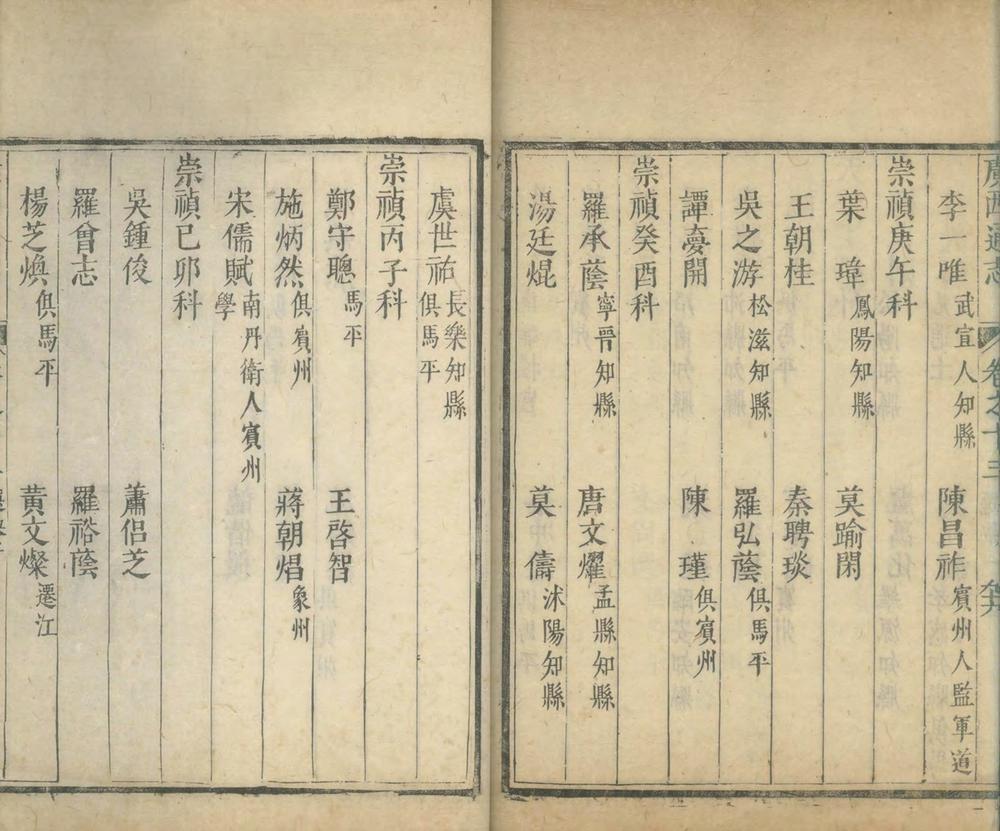 廣西通志 卷之十三
李一唯 武宣人知縣 陳昌祚 賓州人監軍道
崇禎庚午科
葉瑋 鳳陽知縣 莫踰閑
王朝桂 秦聘琰
吳之游 松滋知縣 羅弘蔭 俱馬平
譚憂開 陳瑾 俱賓州
崇禎癸酉科
羅承蔭 寧晉知縣 唐文燿 孟縣知縣
湯廷焜 莫儔 沭陽知縣
虞世祐 長樂知縣 俱馬平
崇禎丙子科
鄭守聰 馬平 王啓智
施炳然 俱賓州 蔣朝焻 象州
宋儒賦 南丹衛人賓州學
崇禎己卯科
吳鍾俊 蕭侣芝
羅曾志 羅裕蔭
楊芝煥 俱馬平 黃文燦 遷江